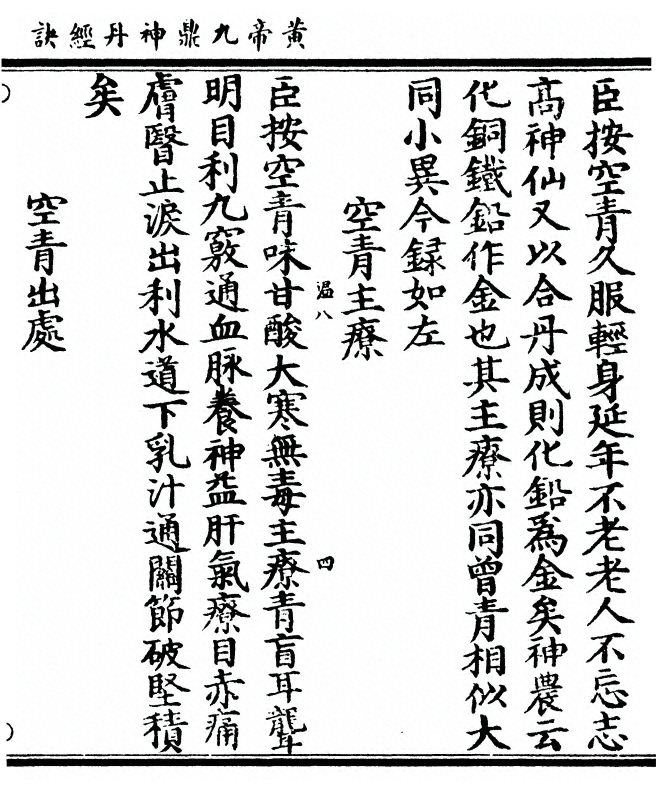 黃帝九鼎神丹經訣
臣按空青久服輕身延年不老老人不忘志
高神仙又以合丹成則化鉛爲金矣神農云
化銅鐵鉛作金也其主療亦同曾青相似大
同小異今録如左
空青主療
溫八
四
臣按空青味甘酸大寒無毒主療青盲耳聾
明目利九竅通血脉養神益肝氣療目赤痛
膚瞖止淚出利水道下乳汁通關節破堅積
矣
空青出處